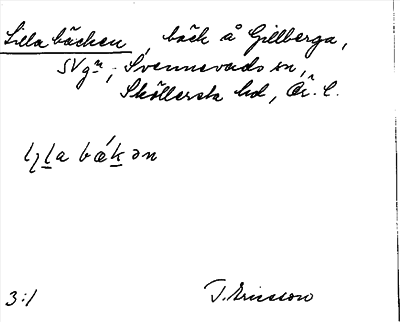 Lilla bäcken, bäck å Gillberga,
SVgn, Svennevads sn,
Sköllersta hd, Ör. l.
lilla bäkən
3:1
T. Ericsson